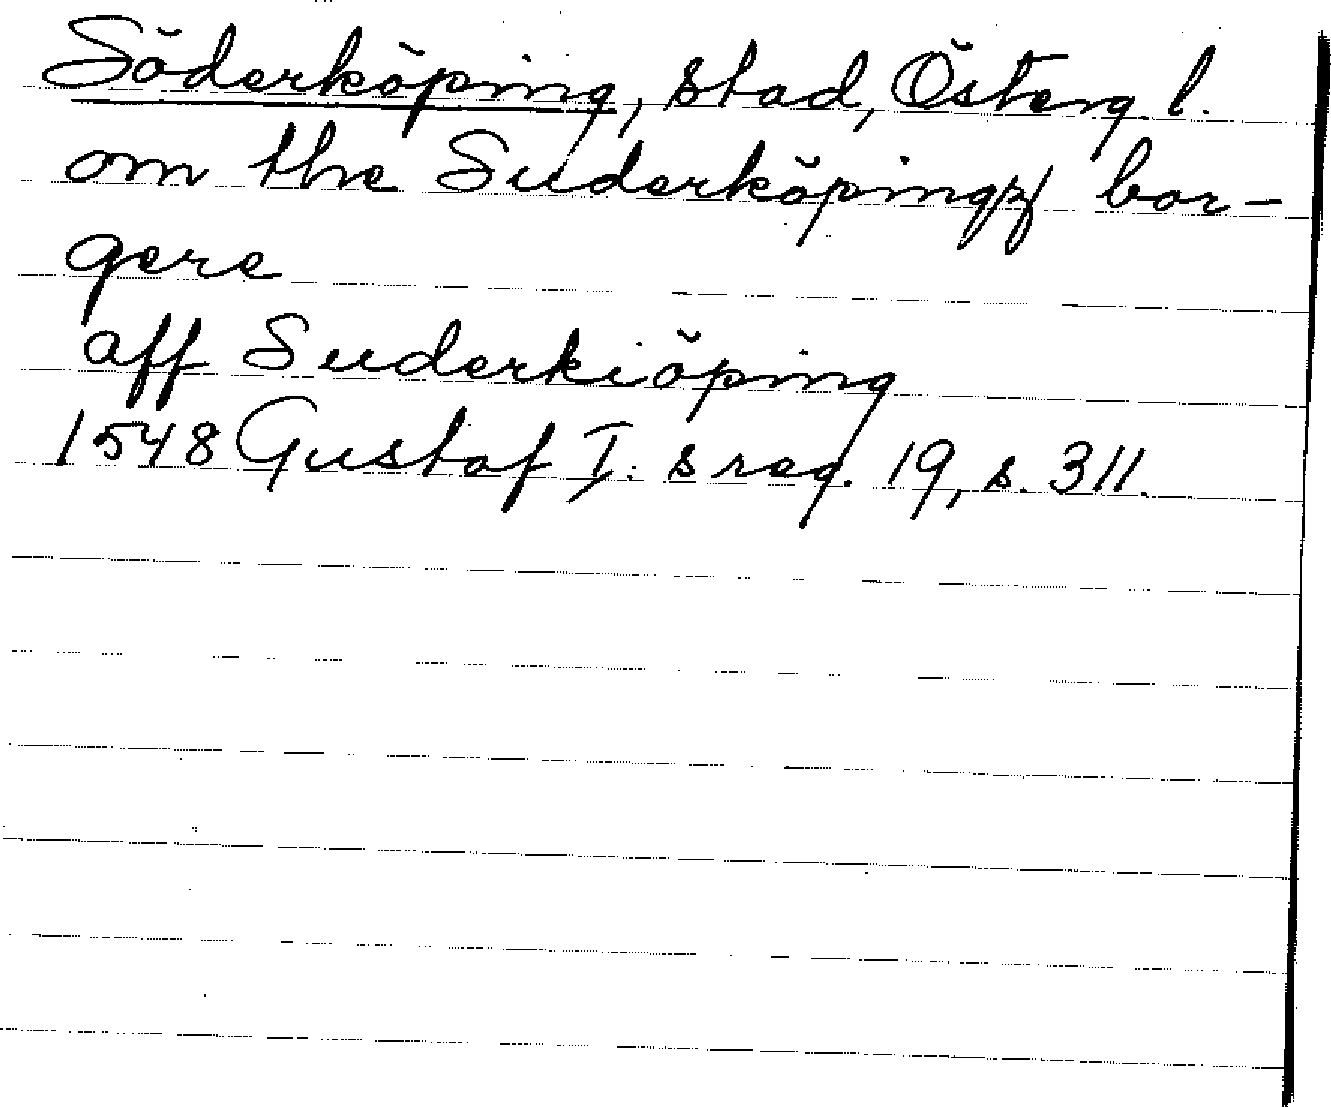 Söderköping, stad, Österg. l.
om the Suderköpingz bor-
gere
aff Suderkiöping
1548 Gustaf I:s reg. 19, s. 311.